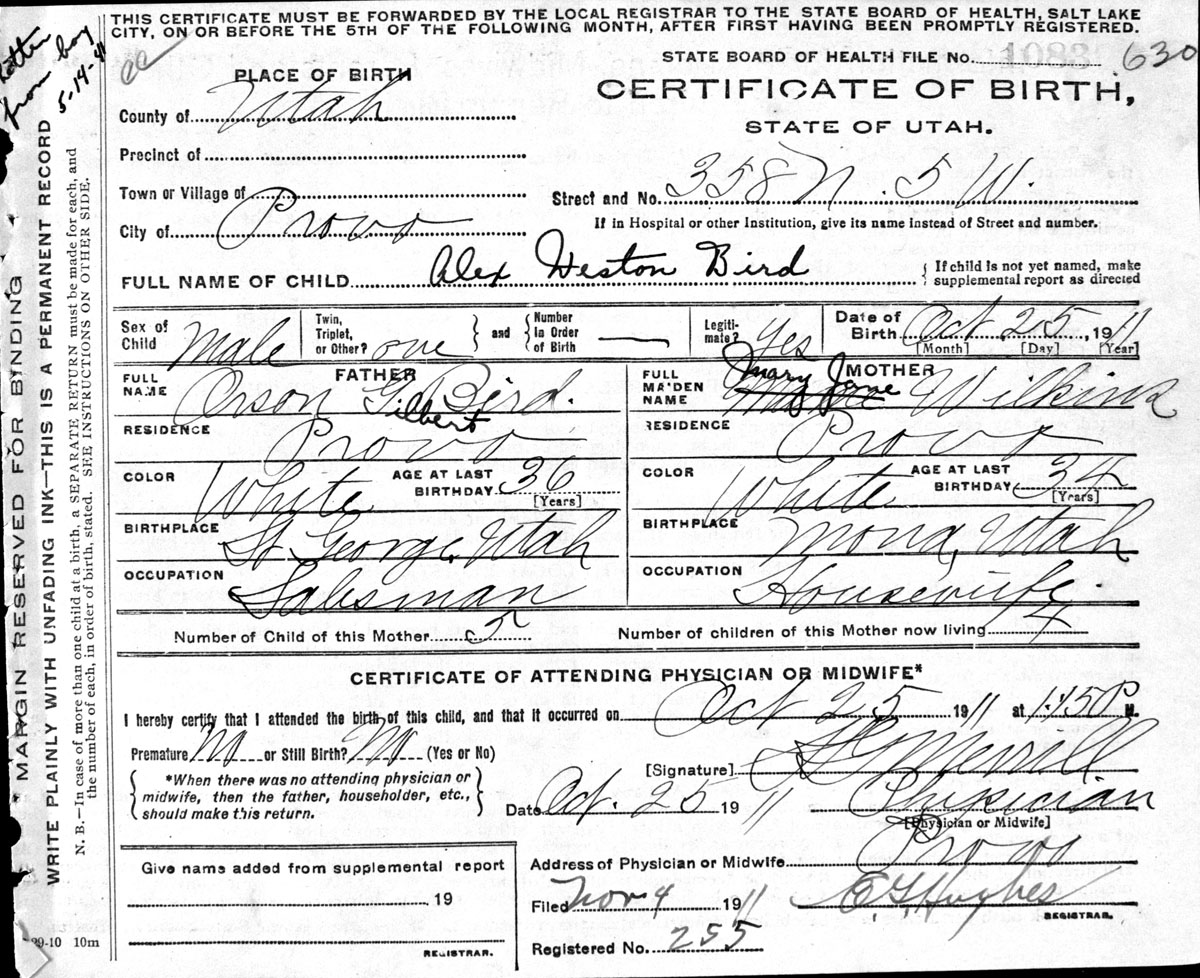 THIS CERTIFICATE MUST BE FORWARDED BY THE LOCAL REGISTRAR TO THE STATE BOARD OF HEALTH, SALT LAKE
CITY, ON OR BEFORE THE 5TH OF THE FOLLOWING MONTH, AFTER FIRST HAVING BEEN PROMPTLY REGISTERED.
Letter from boy
5-19-41
MARGIN RESERVED FOR BINDING
WRITE PLAINLY WITH UNFADING INK—THIS IS A PERMANENT RECORD
N. B.—In case of more than one child at a birth, a SEPARATE RETURN must be made for each, and
the number of each, in order of birth, stated. SEE INSTRUCTIONS ON OTHER SIDE.
STATE BOARD OF HEALTH FILE No. 1083 630
PLACE OF BIRTH
CERTIFICATE OF BIRTH,
STATE OF UTAH.
County of Utah
Precinct of
Town or Village of
Street and No. 358 N. 5 W.
City of Provo
If in Hospital or other Institution, give its name instead of Street and number.
FULL NAME OF CHILD Alex Weston Bird
If child is not yet named, make
supplemental report as directed
Sex of Child Male
Twin, Triplet, or Other? one
and
Number In Order of Birth —
Legiti- mate? Yes
Date of Birth Oct 25, 1911
[Month] [Day] [Year]
FATHER
FULL NAME Orson G. Bird.
Gilbert
MOTHER
FULL MAIDEN NAME Mary Jane Wilkins
RESIDENCE Provo
RESIDENCE Provo
COLOR White
AGE AT LAST BIRTHDAY 36
[Years]
COLOR White
AGE AT LAST BIRTHDAY 34
[Years]
BIRTHPLACE St George, Utah
BIRTHPLACE Mona, Utah
OCCUPATION Salesman
OCCUPATION Housewife.
Number of Child of this Mother 5
Number of children of this Mother now living 4
CERTIFICATE OF ATTENDING PHYSICIAN OR MIDWIFE*
I hereby certify that I attended the birth of this child, and that it occurred on Oct 25 1911 at P M.
Premature No or Still Birth? No (Yes or No)
*When there was no attending physician or
midwife, then the father, householder, etc.,
should make this return.
[Signature] Merrill
Date Oct. 25 1911 Physician
[Physician or Midwife]
Give name added from supplemental report
19
REGISTRAR.
Address of Physician or Midwife Provo
Filed Nov 4 1911 Hughes
REGISTRAR.
Registered No. 255
29-10 10m